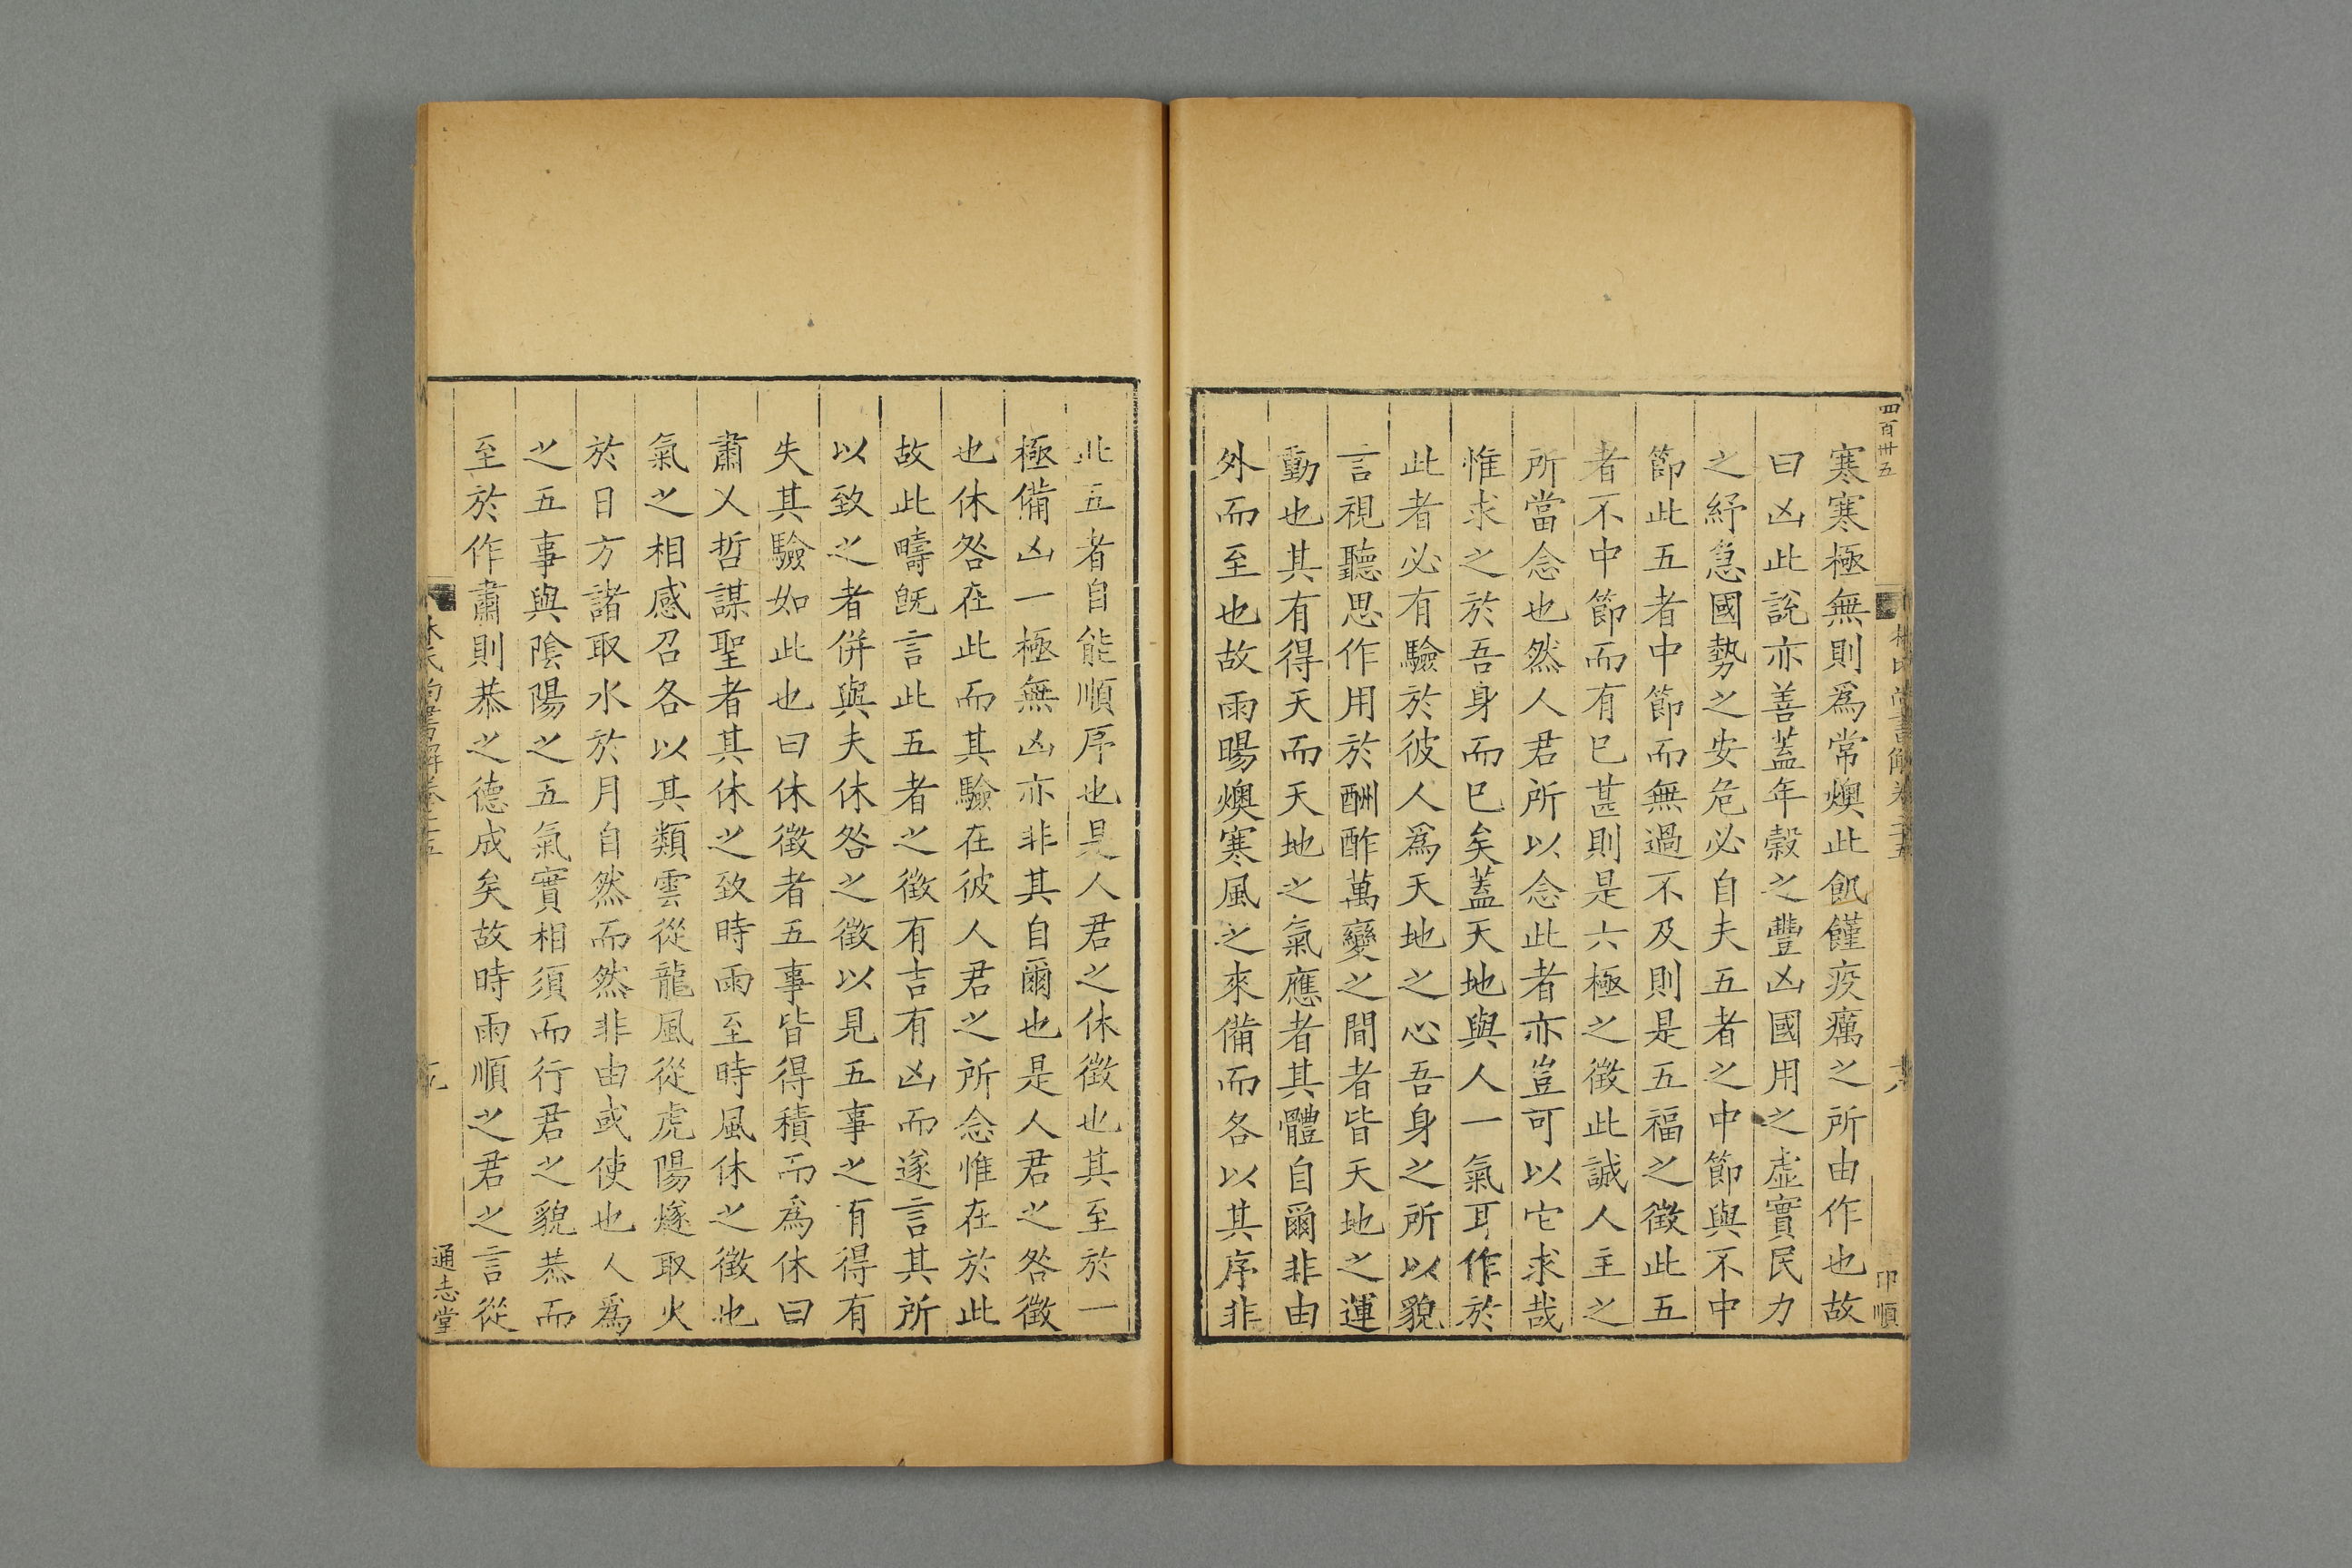 四百卅五
寒寒極無則爲常燠此飢饉疫癘之所由作也故
曰凶此說亦善蓋年穀之豐凶國用之虛實民力
之紓急國勢之安危必自夫五者之中節與不中
節此五者中節而無過不及則是五福之徵此五
者不中節而有已甚則是六極之徵此誠人主之
所當念也然人君所以念此者亦豈可以它求哉
惟求之於吾身而已矣蓋天地與人一氣耳作於
此者必有驗於彼人爲天地之心吾身之所以貌
言視聽思作用於酬酢萬變之間者皆天地之運
動也其有得天而天地之氣應者其體自爾非由
外而至也故雨暘燠寒風之來備而各以其序非
此五者自能順序也是人君之休徵也其至於一
極備凶一極無凶亦非其自爾也是人君之咎徵
也休咎在此而其驗在彼人君之所念惟在於此
故此疇旣言此五者之徵有吉有凶而遂言其所
以致之者併與夫休咎之徵以見五事之有得有
失其驗如此也曰休徵者五事皆得積而爲休曰
肅乂哲謀聖者其休之致時雨至時風休之徵也
氣之相感召各以其類雲從龍風從虎陽燧取火
於日方諸取水於月自然而然非由或使也人爲
之五事與陰陽之五氣實相須而行君之貌恭而
至於作肅則恭之德成矣故時雨順之君之言從
林氏尚書解卷二十五
通志堂